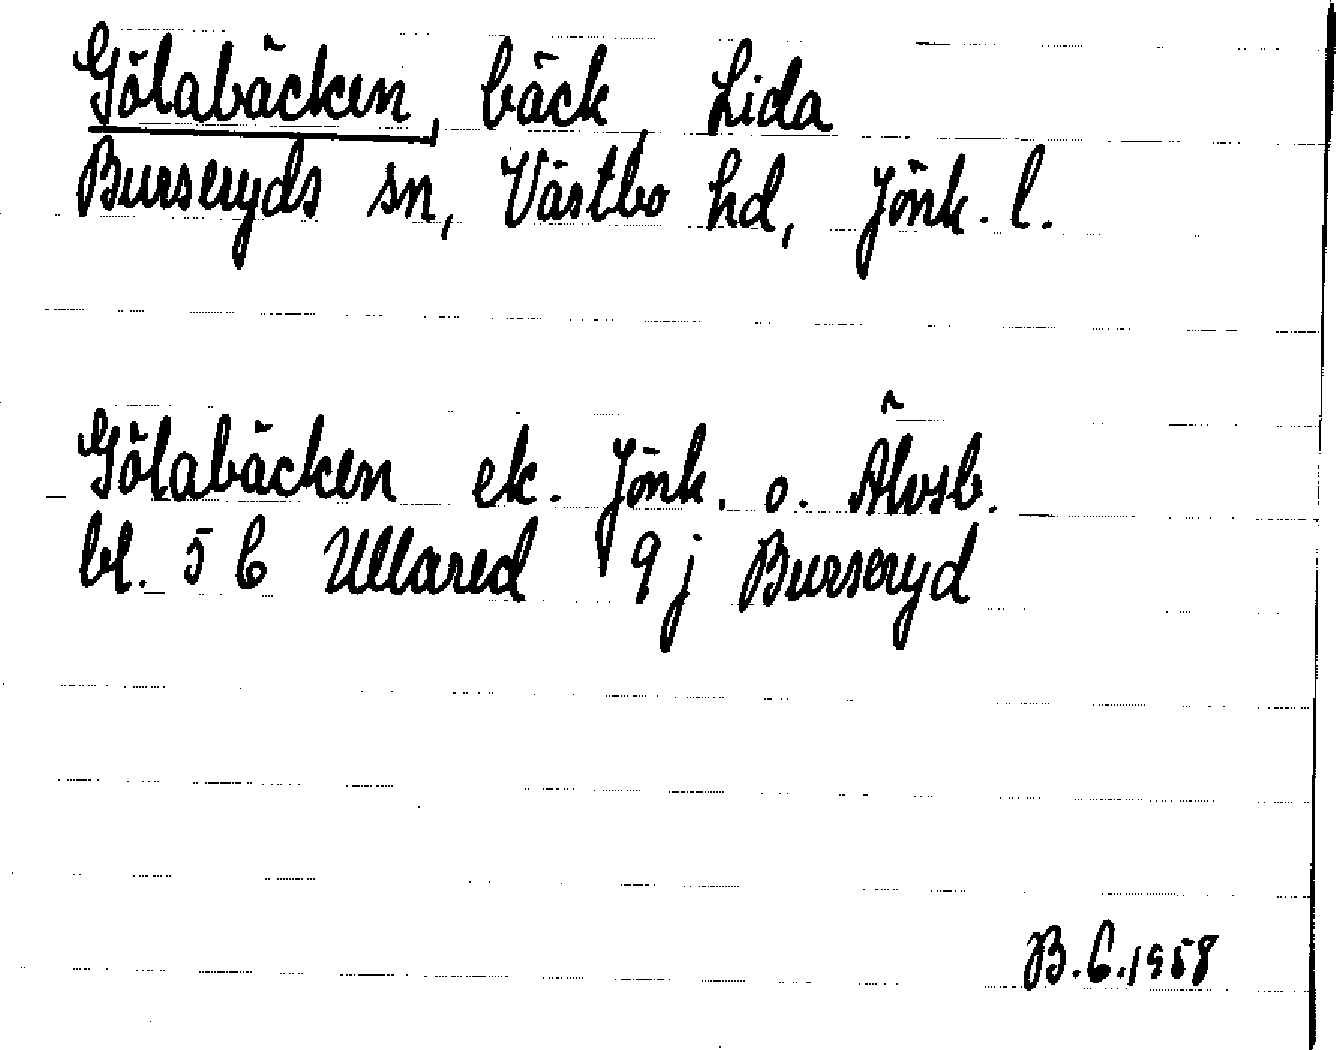 Gölabäcken, bäck, Lida
Burseryds sn, Västbo hd, Jönk. l.
Gölabäcken ek. Jönk. o. Älvsb.
bl. 5 C Ullared 9 j Burseryd
B.C.1958